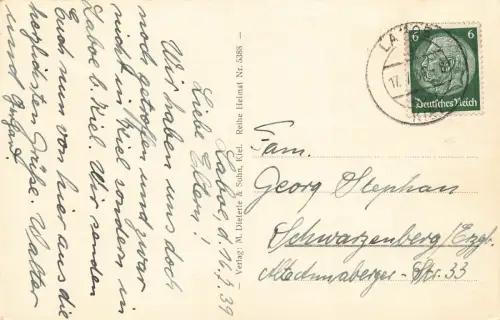 Laboe, d. 17.5.39
Liebe Eltern!
Wir haben uns doch
noch getroffen und zwar
nicht in Kiel sondern in
Laboe b. Kiel. Wir senden
Euch nun von hier aus die
herzlichsten Grüße. Walter
und Gerhard.
– Verlag: M. Dieterle & Sohn, Kiel. Reihe Heimat Nr. 5388 –
6 6
Deutsches Reich
LABOE
17.
Fam.
Georg Stephan
Schwarzenberg/Erzgb.
Str. 33